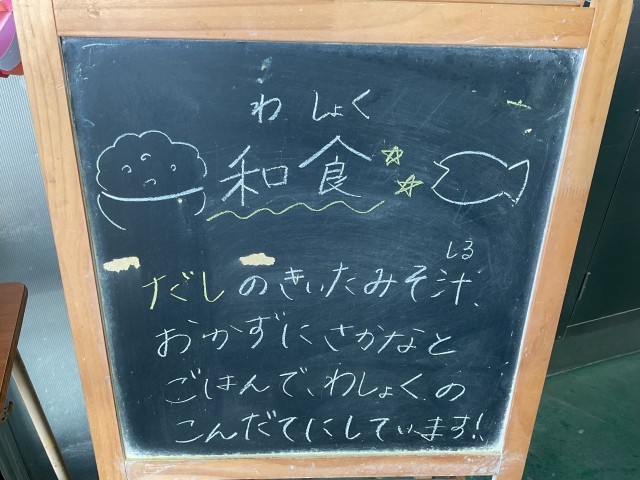 わしょく
和食
しる
だしのきいたみそ汁、
おかずにさかなと
ごはんで、わしょくの
こんだてにしています!